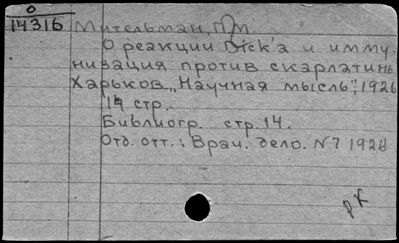 0
14316 Мительман, П.М.
О реакции Dick'a и имму
низация против скарлатины
Харьков „Научная мысль", 1926
14 стр.
Библиогр. стр. 14.
Отд. отт.: Врач. дело. N7 1926
рК